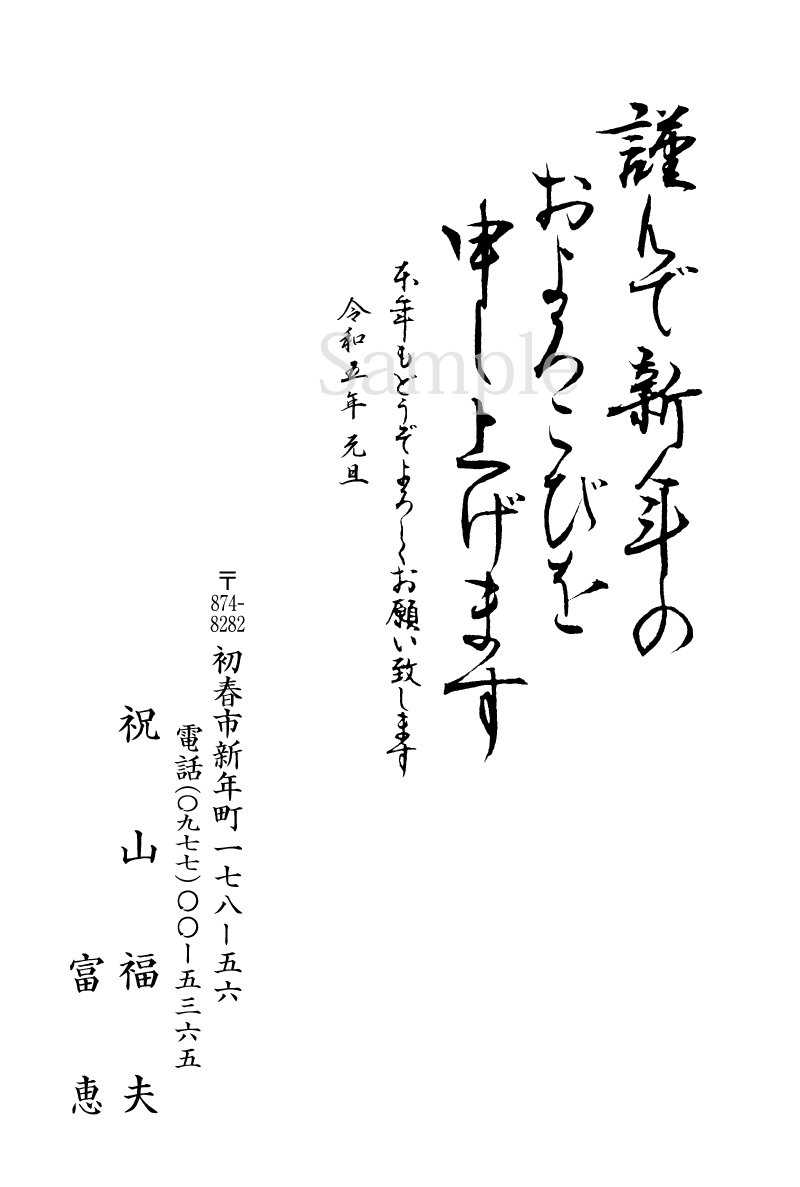 謹んで新年の
およろこびを
申し上げます
本年もどうぞよろしくお願い致します
令和五年 元旦
〒874-8282 初春市新年町一七八ー五六
電話(〇九七七)〇〇ー五三六五
祝山福夫
富恵
Sample